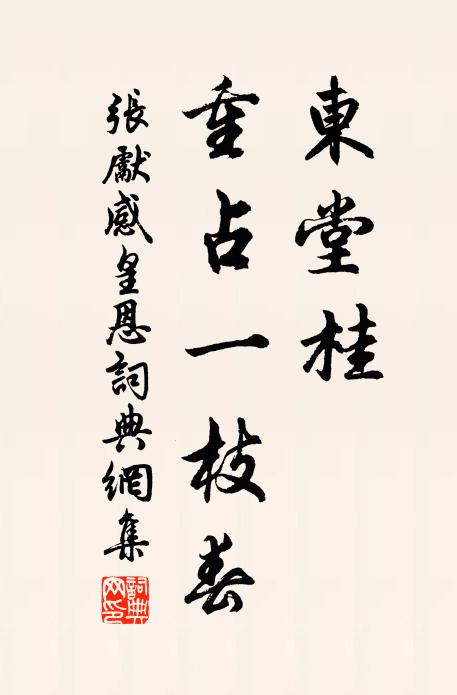 東堂桂
重占一枝春
張獻感皇恩詞典網集
詞典
网印